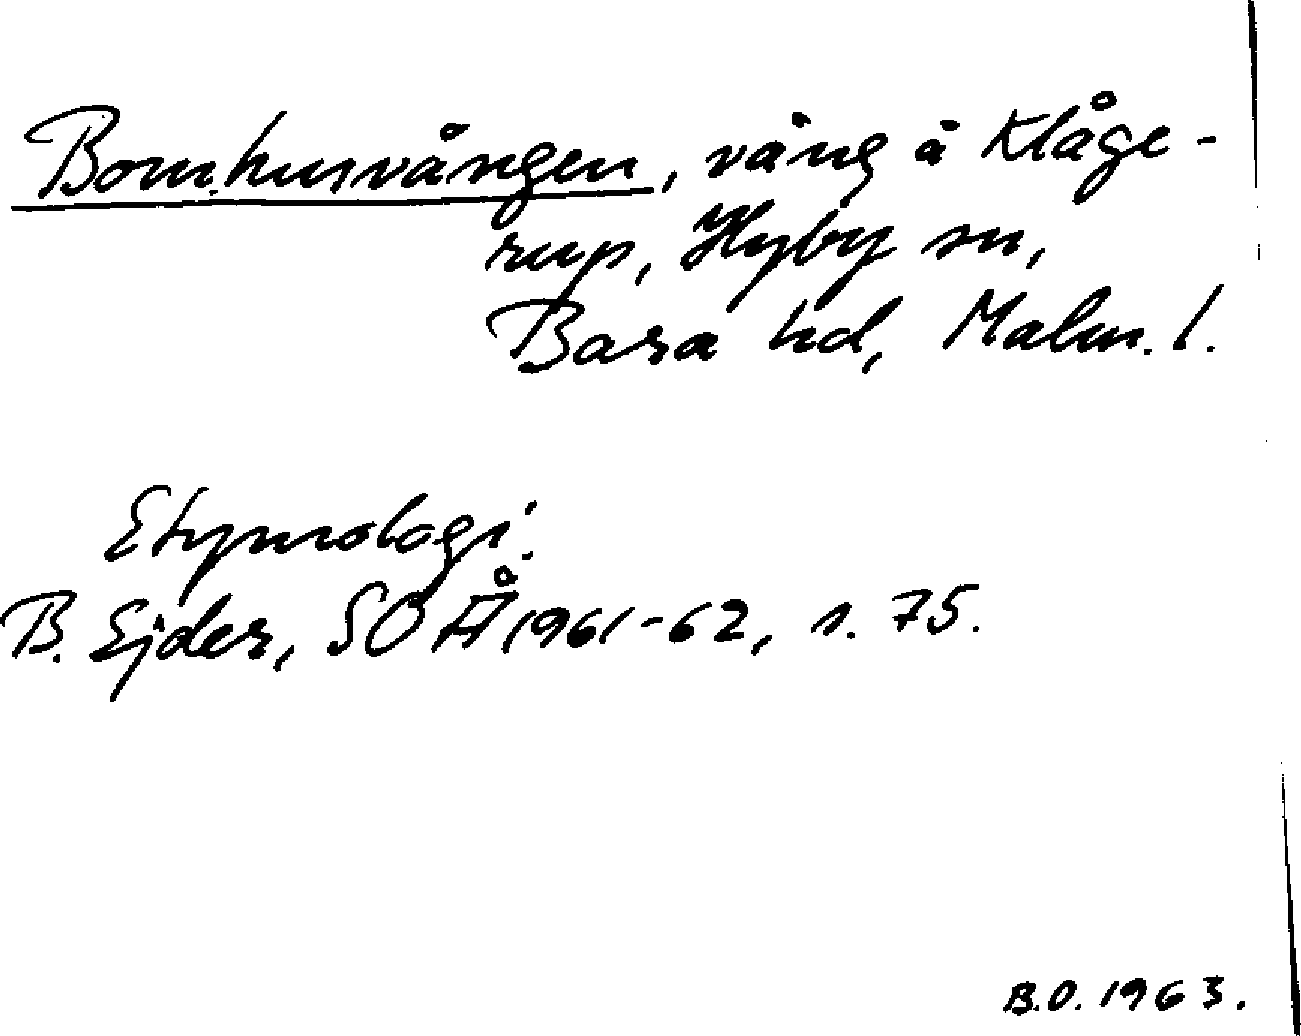 Bomhusvången, vång å Klåge-
rup, Hyby sn,
Bara hd, Malm. l.
Etymologi:
B. Ejder, SOÅ 1961-62, s. 75.
B.O. 1963.